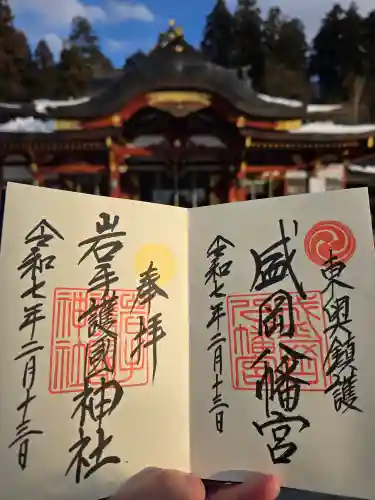 東奥鎮護
盛岡八幡宮
令和七年二月十三日
奉拝
岩手護國神社
令和七年二月十三日